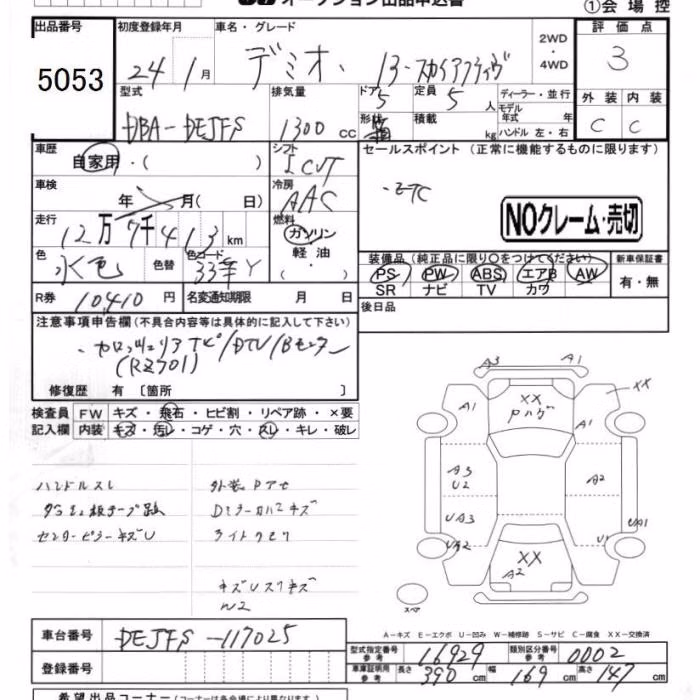 オークション出品申込書
①会場控
出品番号
5053
初度登録年月
24 1月
車名・グレード
デミオ、 13-スカイアクティヴ
2WD・4WD
評価点
3
型式
DBA-DEJFS
排気量
1300 cc
ドア
5
定員
5人
形状
積載
kg
ディーラー・並行
モデル年式 年式
ハンドル 左・右
外装
内装
C
C
車歴
自家用・( )
シフト
I CVT
セールスポイント (正常に機能するものに限ります)
・ETC
NOクレーム・売切
車検
年 月( 日)
冷房
AAC
走行
12万7千413 km
燃料
ガソリン
軽油
色
水色
色替
色コード
33幸Y
装備品 (純正品に限り〇をつけてください)
PS PW ABS エアB AW
SR ナビ TV カワ
新車保証書
有・無
R券 10410円
名変通知期限 月 日
後日品
注意事項申告欄 (不具合内容等は具体的に記入して下さい)
・カロッツェリアナビ/DTV/Bモニター
(RZ701)
修復歴 有 [箇所 ]
検査員
記入欄
FW キズ・飛石・ヒビ割・リペア跡・×要
内装 キズ・汚レ・コゲ・穴・スレ・キレ・破レ
ハンドルスレ
ダッシュ板テープ跡
センターピラーキズU
外装Pアセ
Dミラーカバーキズ
ライトクモリ
キズUスリキズ
W2
A3 A1
A1
XX
Pハゲ
A1
XX
A3
U2
A2
UA3
UA2
U1
UA1
XX
A2
スペア
A-キズ E-エクボ U-凹み W-補修跡 S-サビ C-腐食 XX-交換済
車台番号
DEJFS-117025
登録番号
型式指定番号 参考
16929
類別区分番号 参考
0002
車庫証明用 参考
長さ 390 cm
幅 169 cm
高さ 147 cm
希望出品コーナー (コーナーは各会場により異なります)